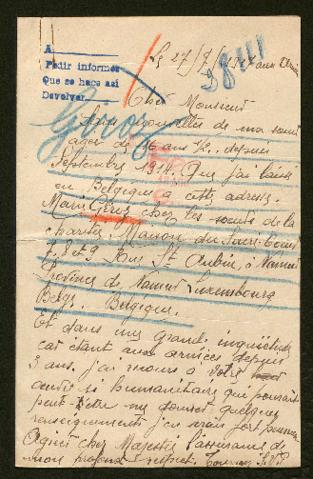 A
Pedir informes
Que se hace así
Devolver
Le 27/7/19
38111
Cher Monsieur
Giroz
Sans nouvelles de ma sœur
ager de 16 ans ½ depuis
Septembre 1914. Que j'ai laissé
en Belgique a cette adresse
Marie chez les sœurs de la
charité Maison du
7, 8 et 9 Rue St Aubin, à Namur
Province de Namur Luxembourg
Belge. Belgique.
Et dans une grande inquiétude
car étant aux services depuis
3 ans. j'ai recours à votre
aussi si humanitaire qui pourrait
peut-être me donner quelques
renseignements j'en serais fort
Agréer cher Majesté l'assurance de
mon profond respect. S.V.P